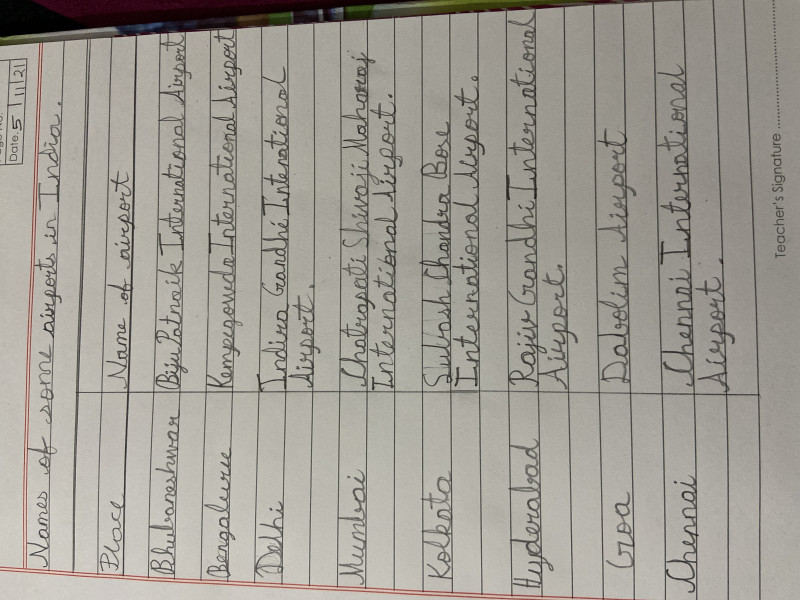 Date. 5/11/21
Names of some airports in India.
Place Name of airport
Bhubaneshwar Biju Patnaik International Airport
Bengaluru Kempegowda International Airport
Delhi Indira Gandhi International
Airport.
Mumbai Chatrapati Shivaji Maharaj
International Airport.
Kolkata Subash Chandra Bose
International Airport.
Hyderabad Rajiv Gandhi International
Airport.
Goa Dabolim Airport
Chennai Chennai International
Airport.
Teacher's Signature